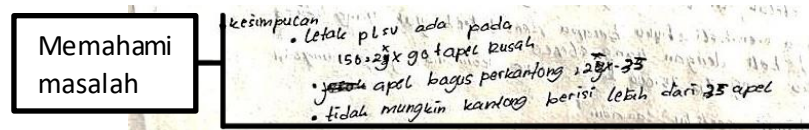 Memahami
masalah
kesimpulan
• letak plsv ada pada
150 = 2 x 90 tapel busah
• apel bagus perkantong = 2 x - 35
• tidak mungkin kantong berisi lebih dari 35 apel